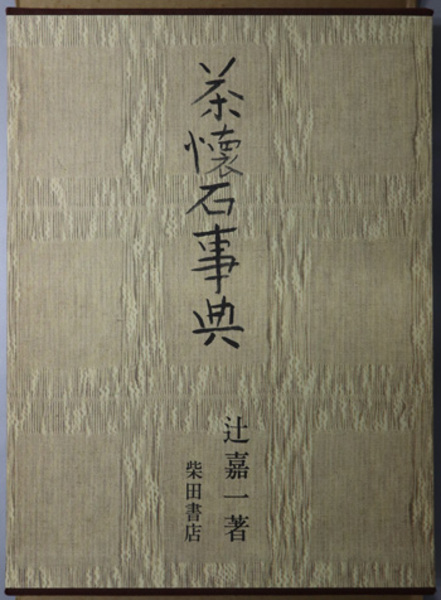 茶懐石事典
辻嘉一著
柴田書店